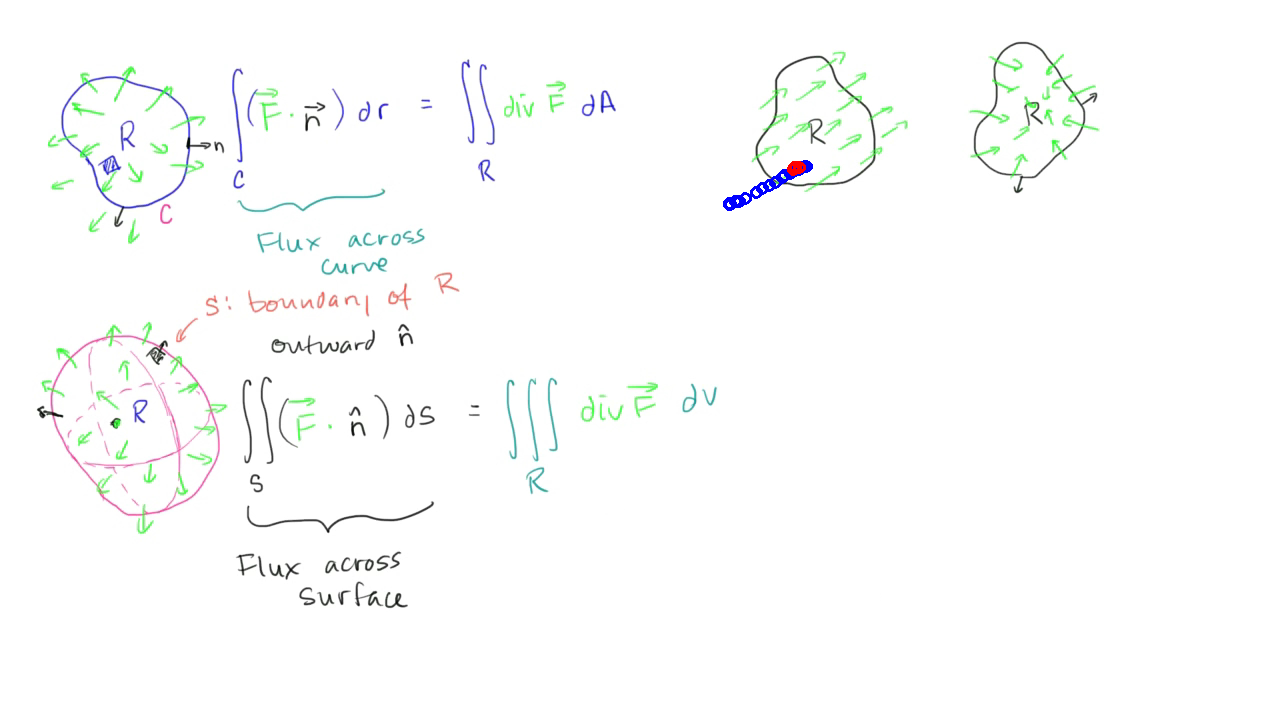 R
→n
C
∫_C (F⃗ · n⃗) dr = ∬_R div F⃗ dA
Flux across
curve
R
R
S: boundary of R
outward n̂
R
∬_S (F⃗ · n̂) dS = ∭_R div F⃗ dV
Flux across
surface